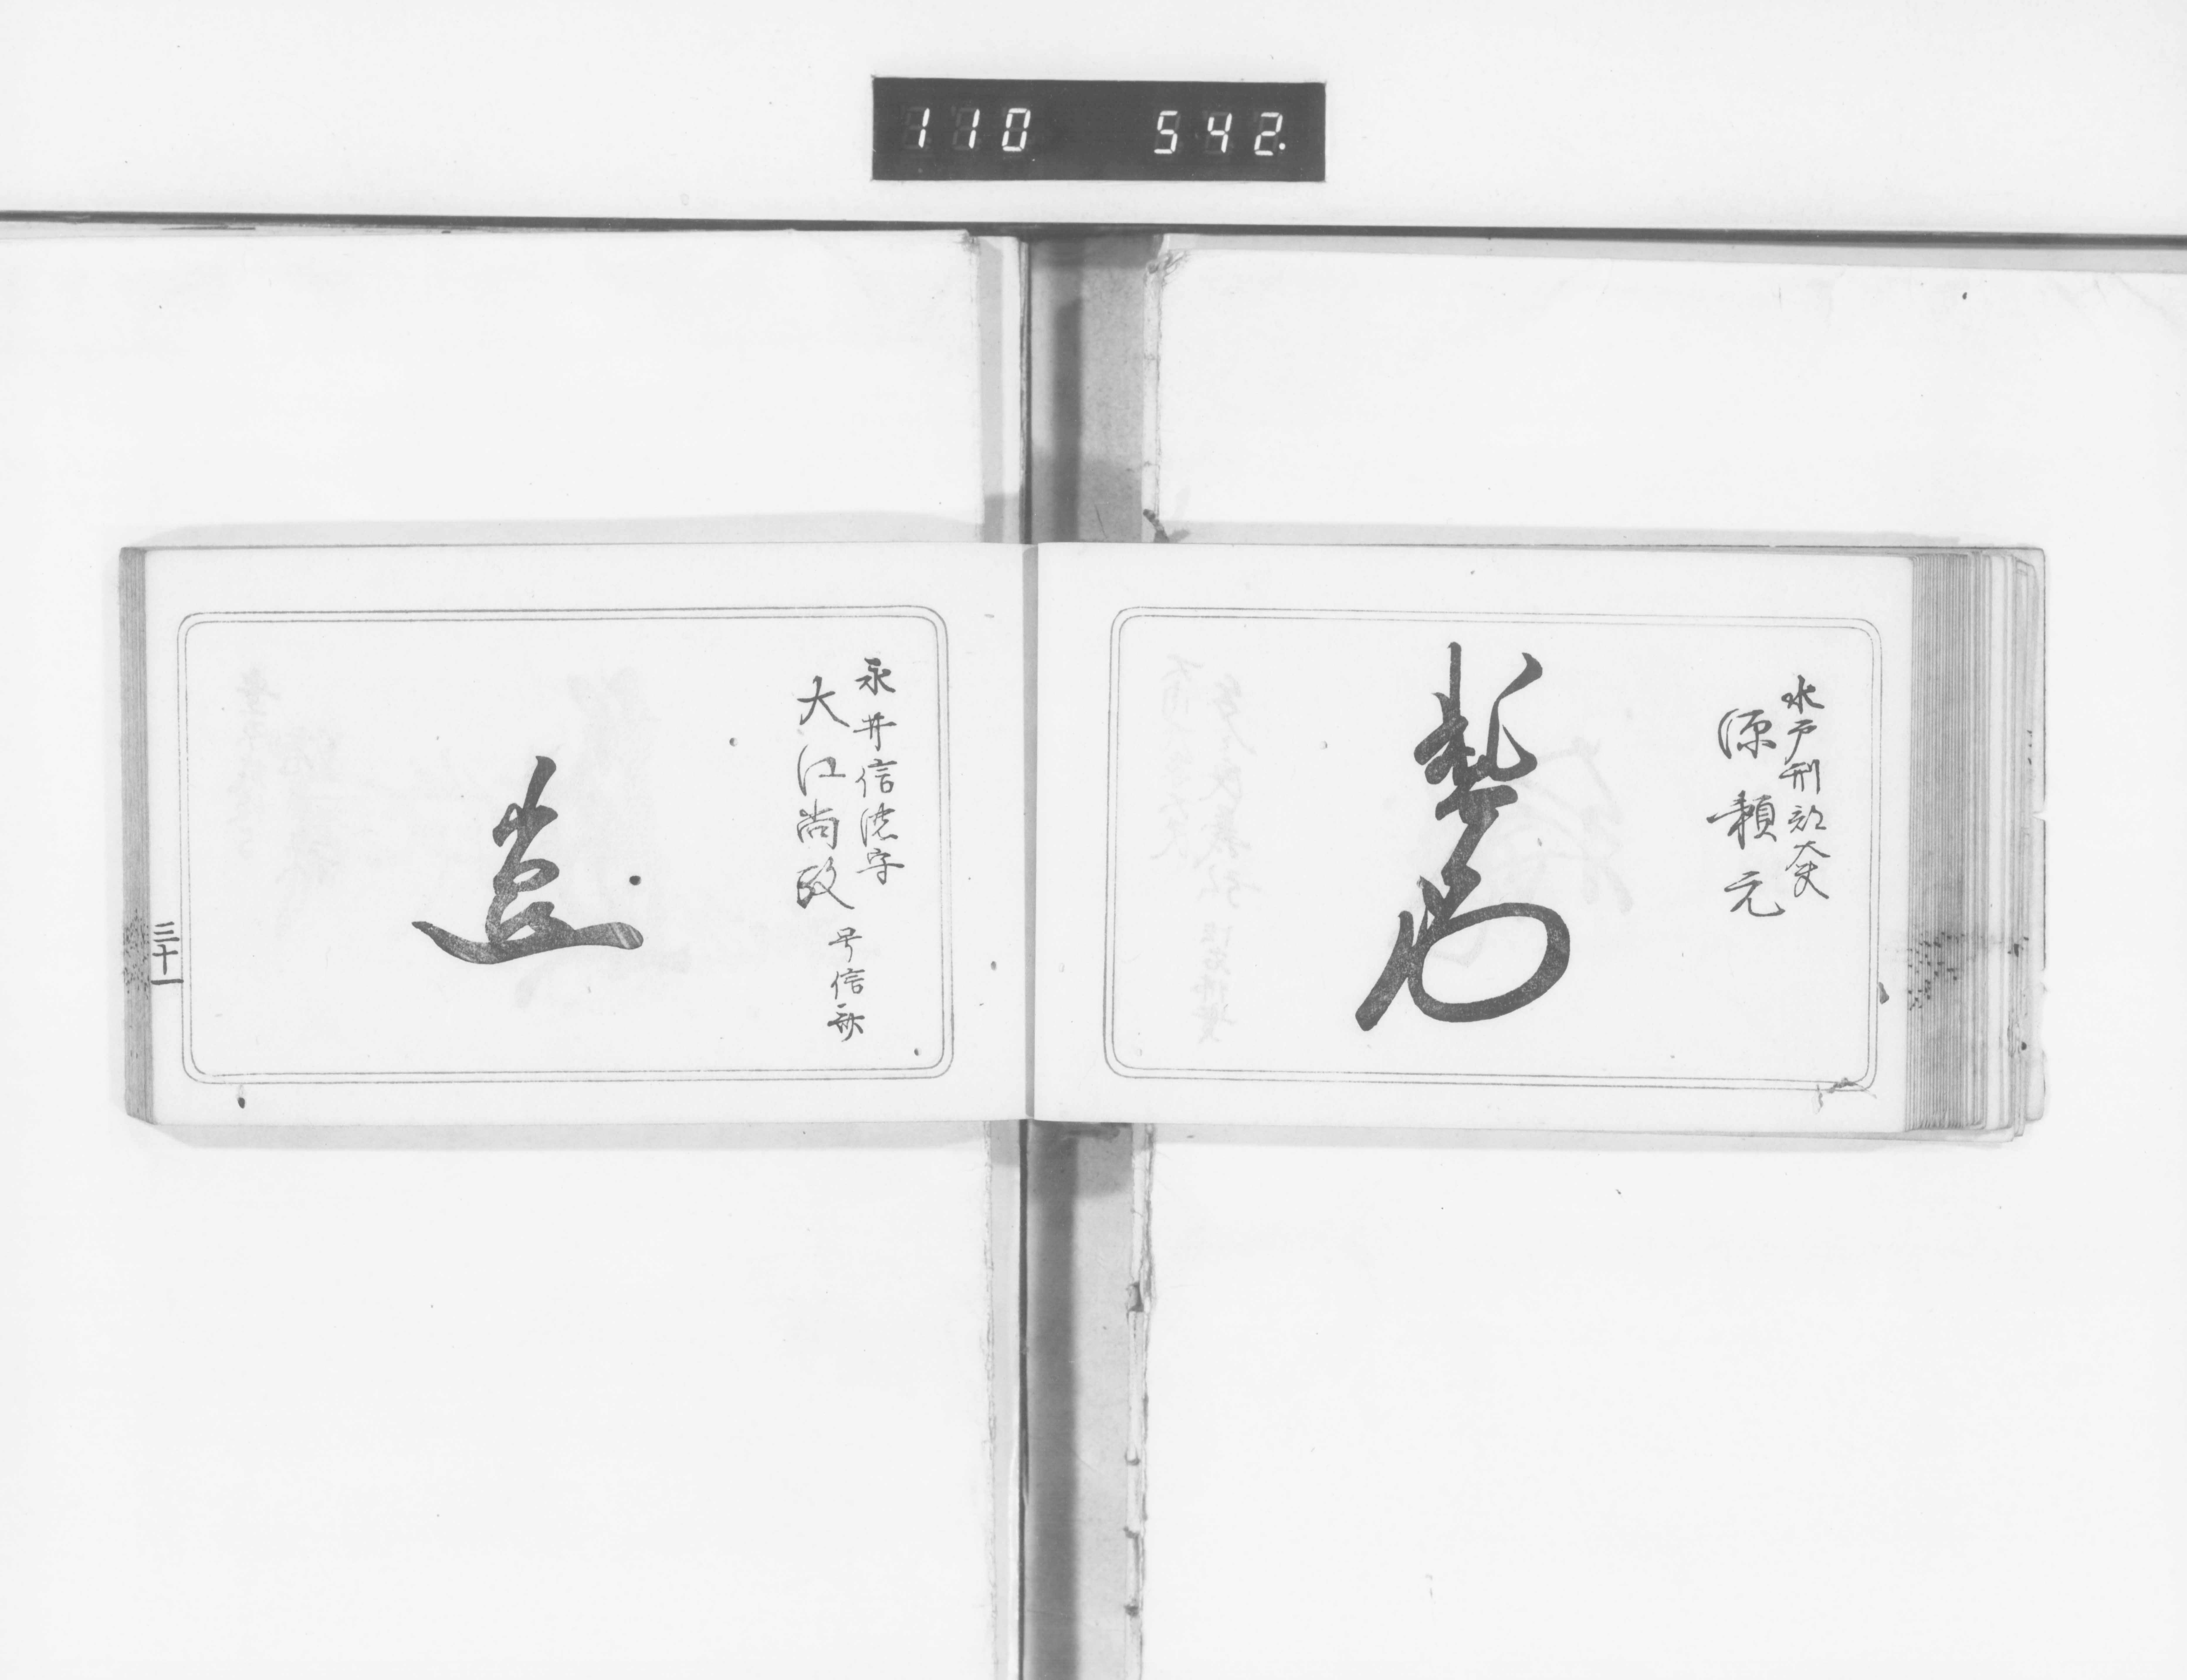 110 542.
水戸刑部大夫
源頼元
永井信濃守
大江尚政
号信斎
三十一